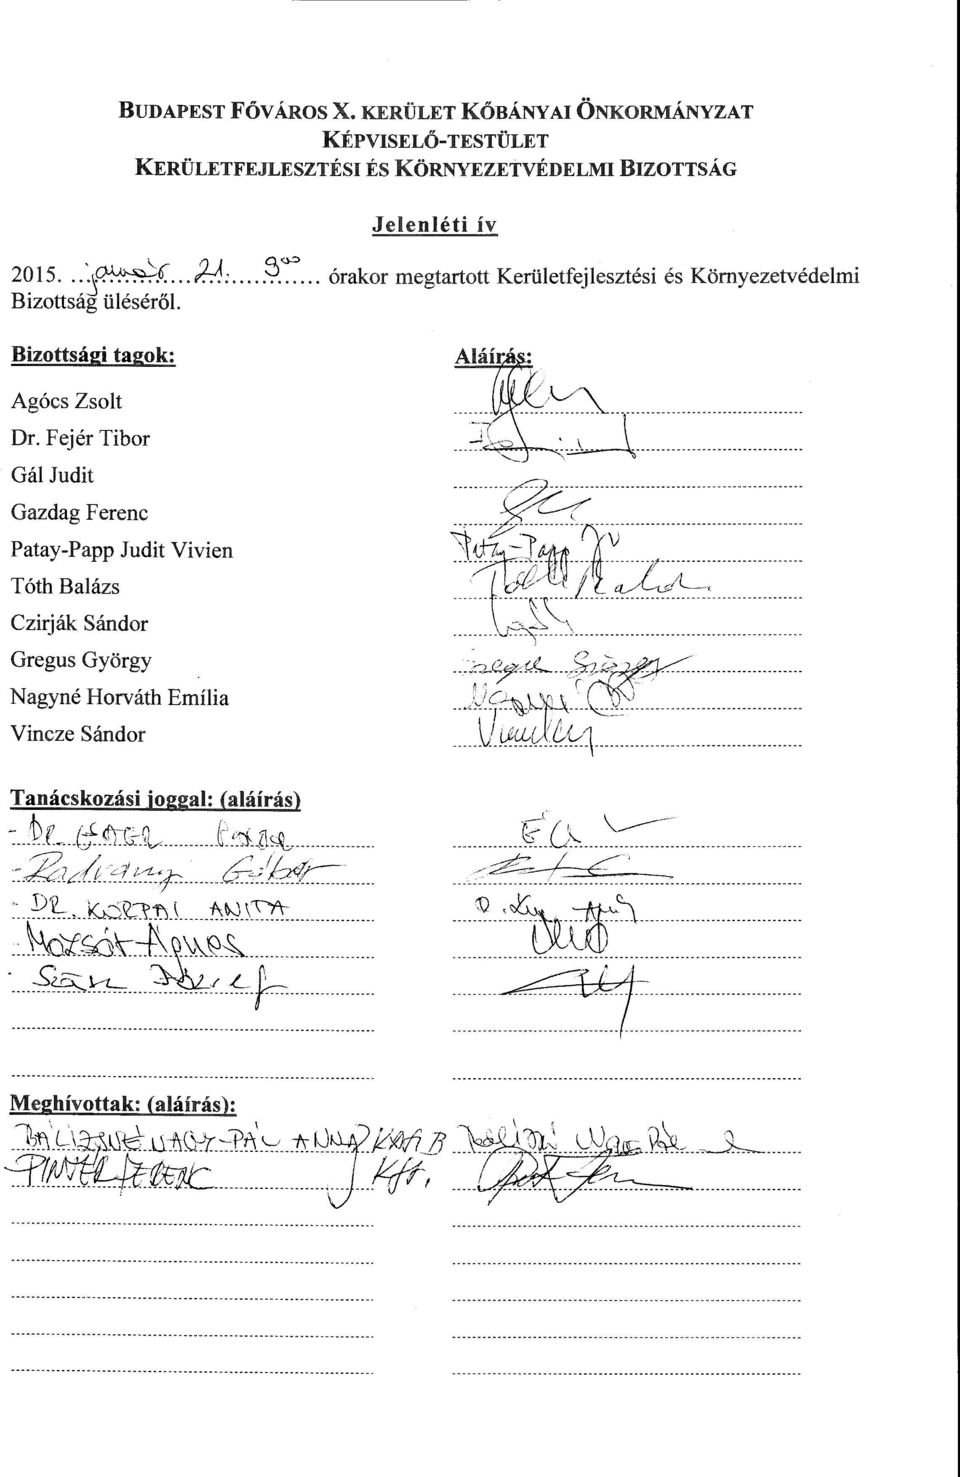 BUDAPEST FŐVÁROS X. KERÜLET KŐBÁNYAI ÖNKORMÁNYZAT
KÉPVISELŐ-TESTÜLET
KERÜLETFEJLESZTÉSI ÉS KÖRNYEZETVÉDELMI BIZOTTSÁG
Jelenléti ív
2015. január 21. 9⁰⁰ órakor megtartott Kerületfejlesztési és Környezetvédelmi
Bizottság üléséről.
Bizottsági tagok: Aláírás:
Agócs Zsolt
Dr. Fejér Tibor
Gál Judit
Gazdag Ferenc
Patay-Papp Judit Vivien Patay-Papp JV
Tóth Balázs Tóth Balázs
Czirják Sándor
Gregus György
Nagyné Horváth Emília
Vincze Sándor
Tanácskozási joggal: (aláírás)
- DR.
- Radványi Gábor
- DR. KORPAI ANITA
- Mozsár Ágnes
- Szász József
Meghívottak: (aláírás):
BALIZSNÉ NAGY-PÁL ANNA
PINTÉR FERENC Kft.